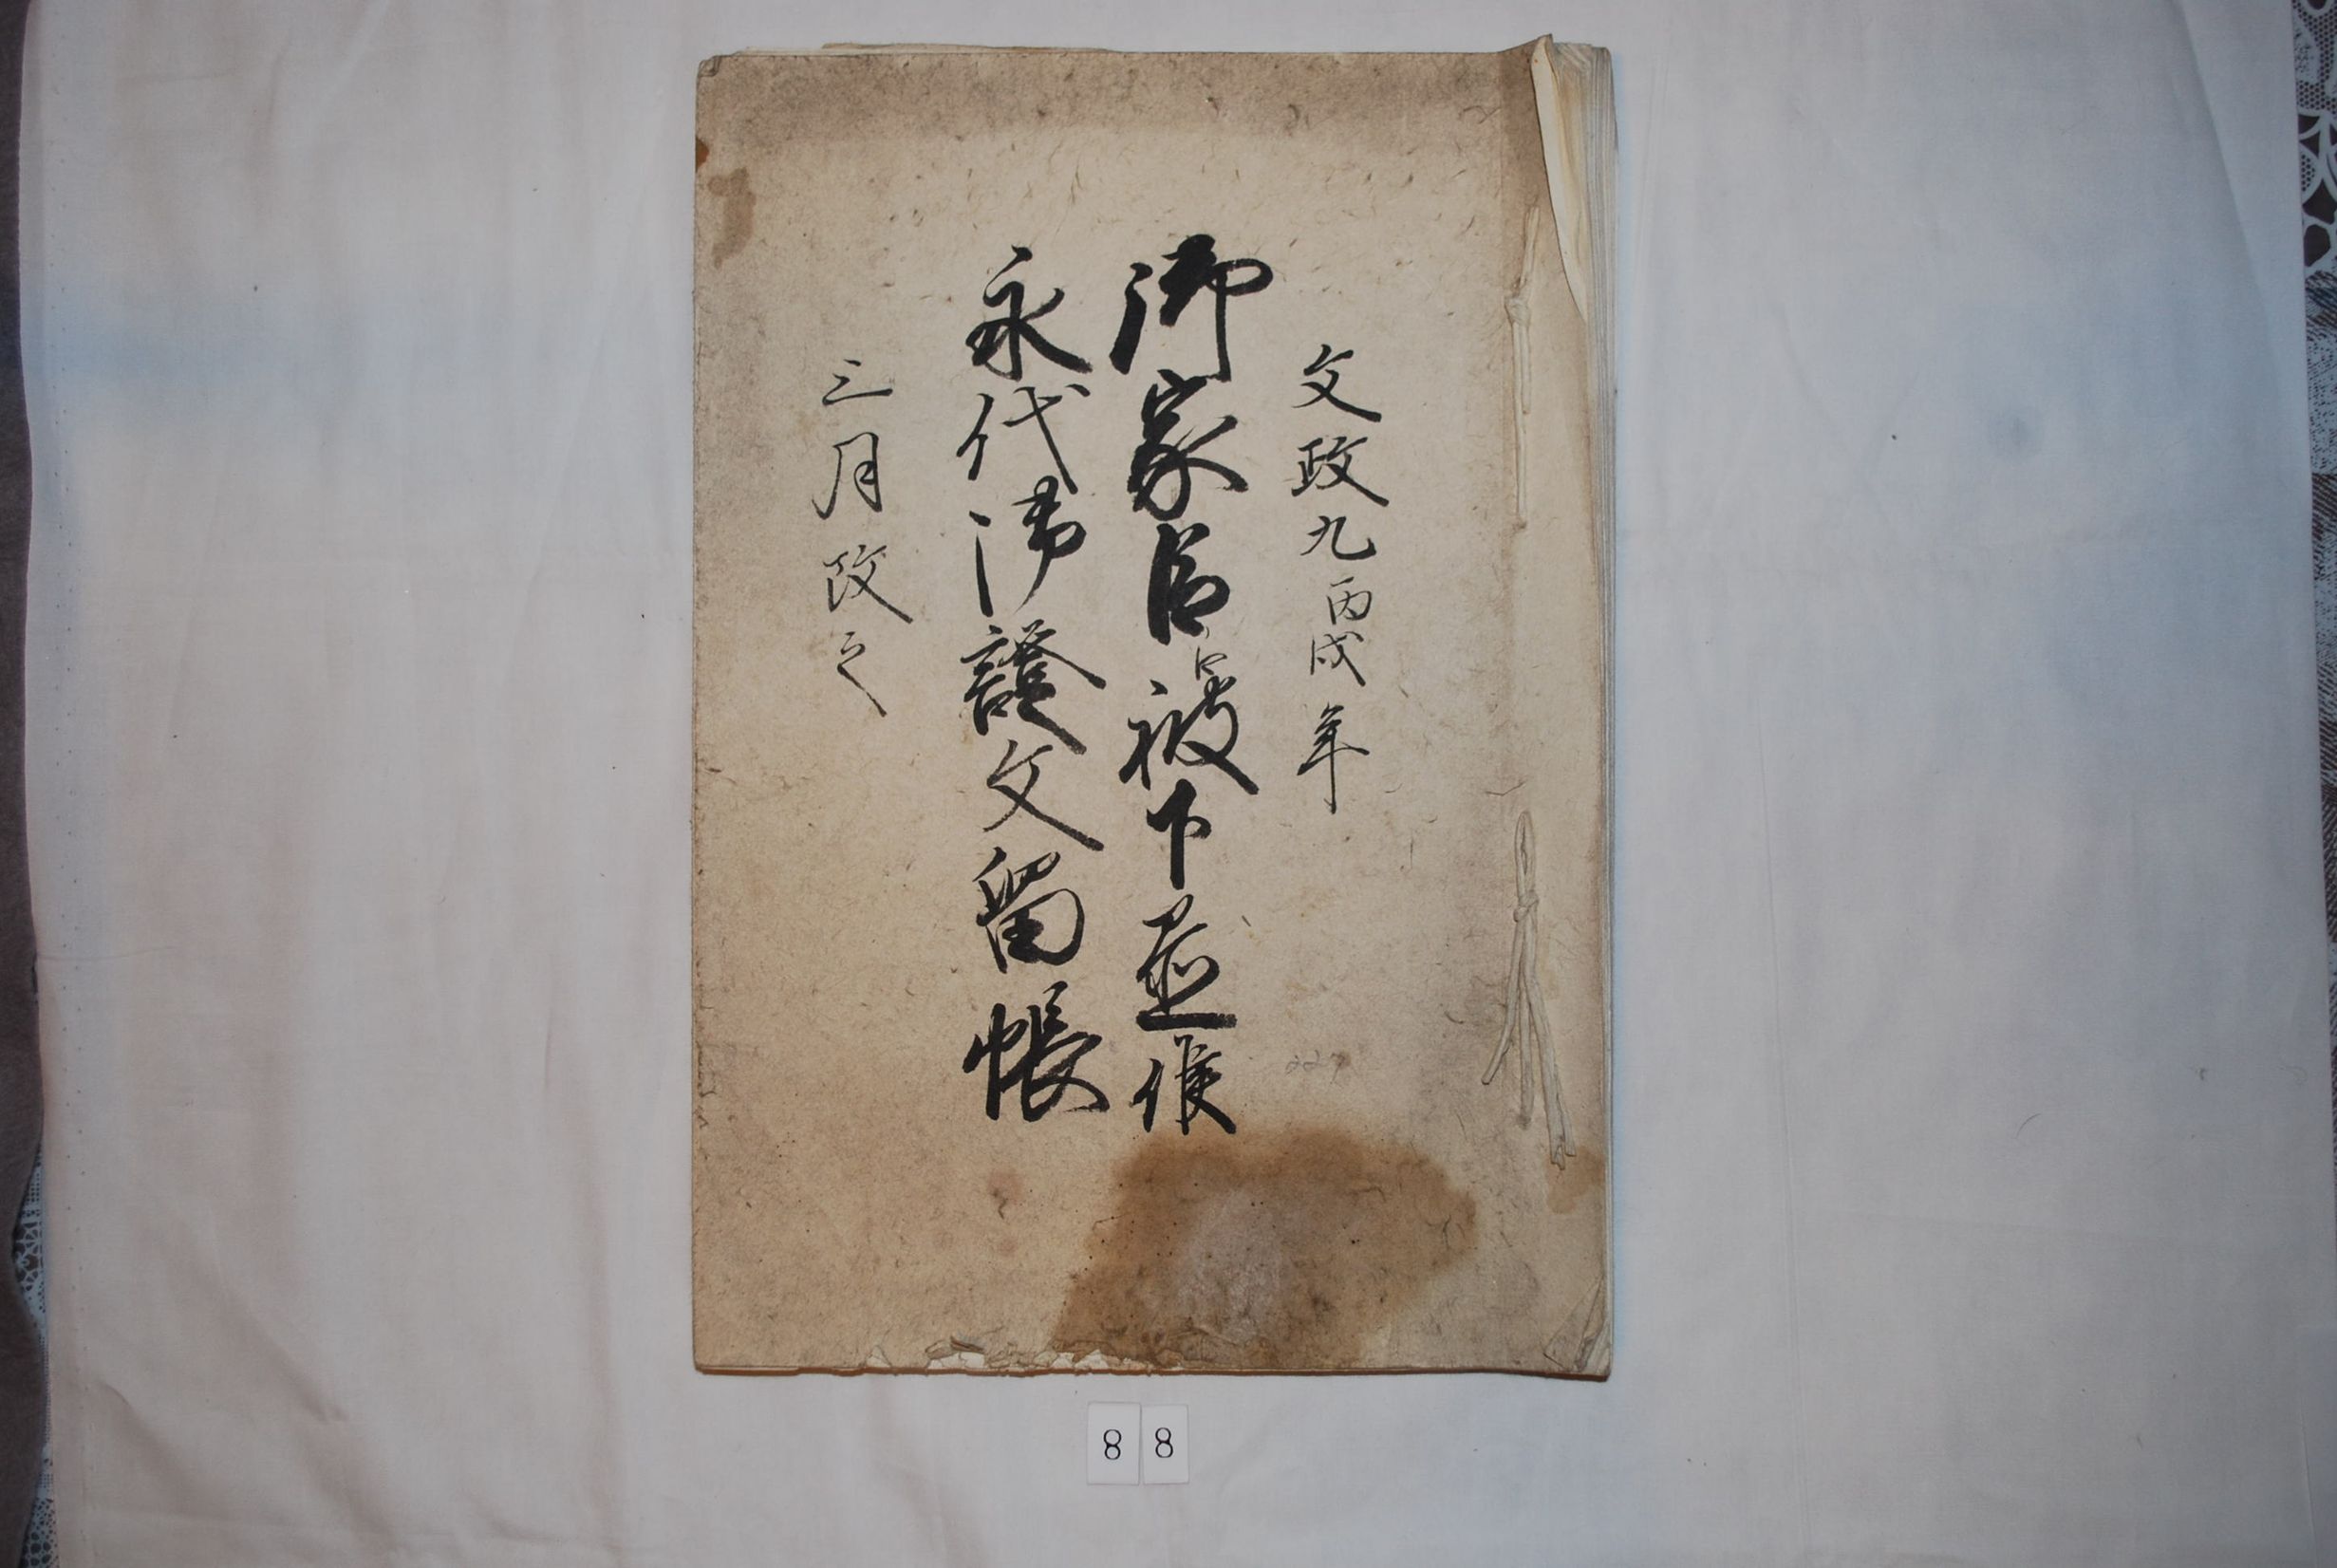 文政九丙戌年
御家被下置候
永代御證文留帳
三月改之
88